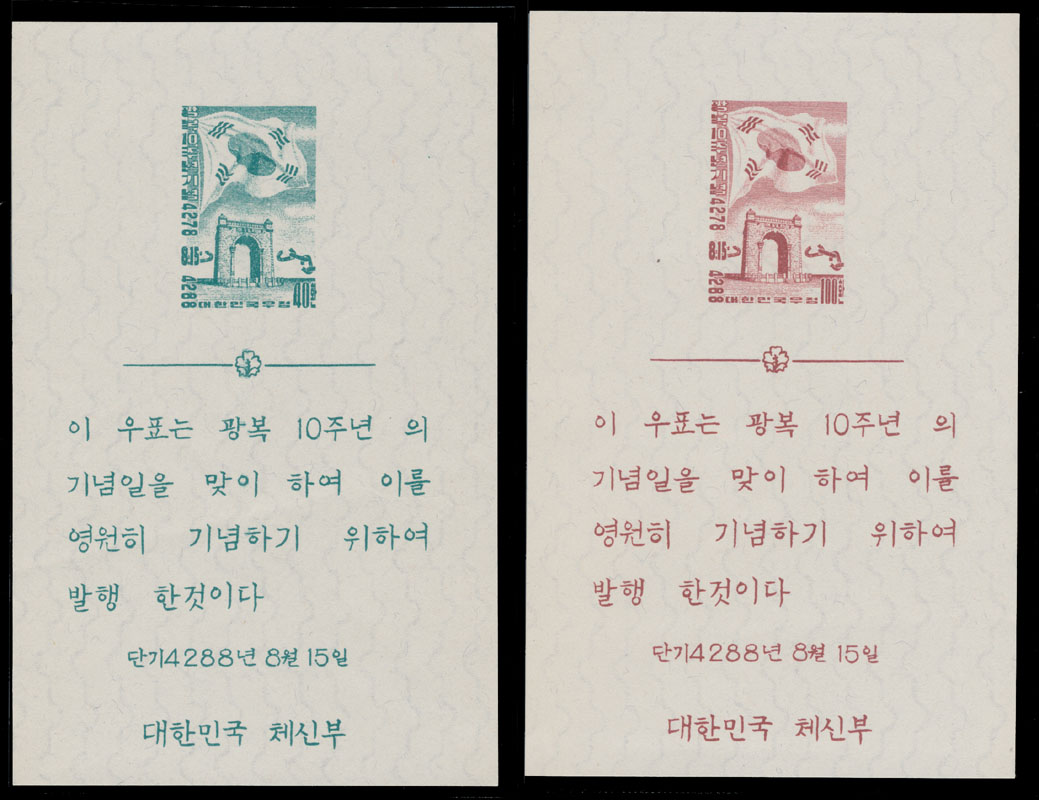 4278
4288
대한민국우표
40환
이 우표는 광복 10주년 의
기념일을 맞이 하여 이를
영원히 기념하기 위하여
발행 한것이다
단기4288년 8월 15일
대한민국 체신부
4278
4288
대한민국우표
100환
이 우표는 광복 10주년 의
기념일을 맞이 하여 이를
영원히 기념하기 위하여
발행 한것이다
단기4288년 8월 15일
대한민국 체신부